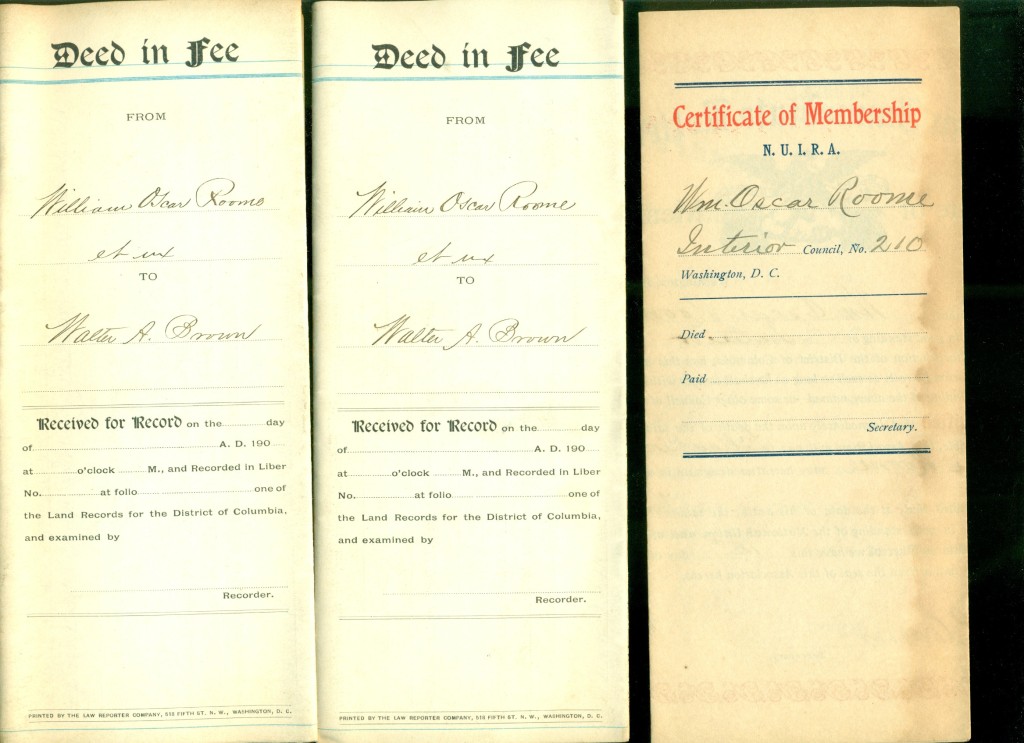 Deed in Fee
FROM
William Oscar Roome
et ux
TO
Walter A. Brown
Received for Record on the day
of A. D. 190
at o'clock M., and Recorded in Liber
No. at folio one of
the Land Records for the District of Columbia,
and examined by
Recorder.
PRINTED BY THE LAW REPORTER COMPANY, 518 FIFTH ST. N. W., WASHINGTON, D. C.
Deed in Fee
FROM
William Oscar Roome
et ux
TO
Walter A. Brown
Received for Record on the day
of A. D. 190
at o'clock M., and Recorded in Liber
No. at folio one of
the Land Records for the District of Columbia,
and examined by
Recorder.
PRINTED BY THE LAW REPORTER COMPANY, 518 FIFTH ST. N. W., WASHINGTON, D. C.
Certificate of Membership
N. U. I. R. A.
Wm. Oscar Roome
Interior Council, No. 210
Washington, D. C.
Died
Paid
Secretary.